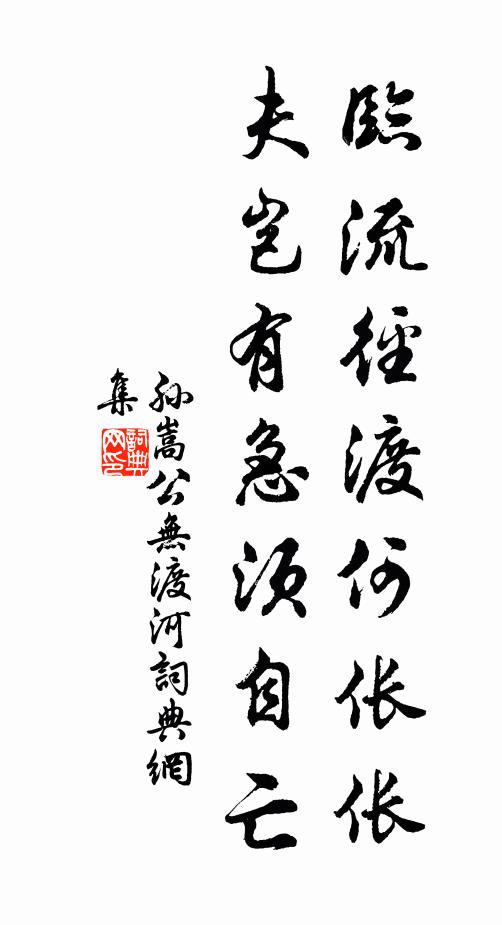 臨流徑渡何伥伥
夫豈有急須自亡
孫嵩公無渡河詞典網
集
詞典
网印